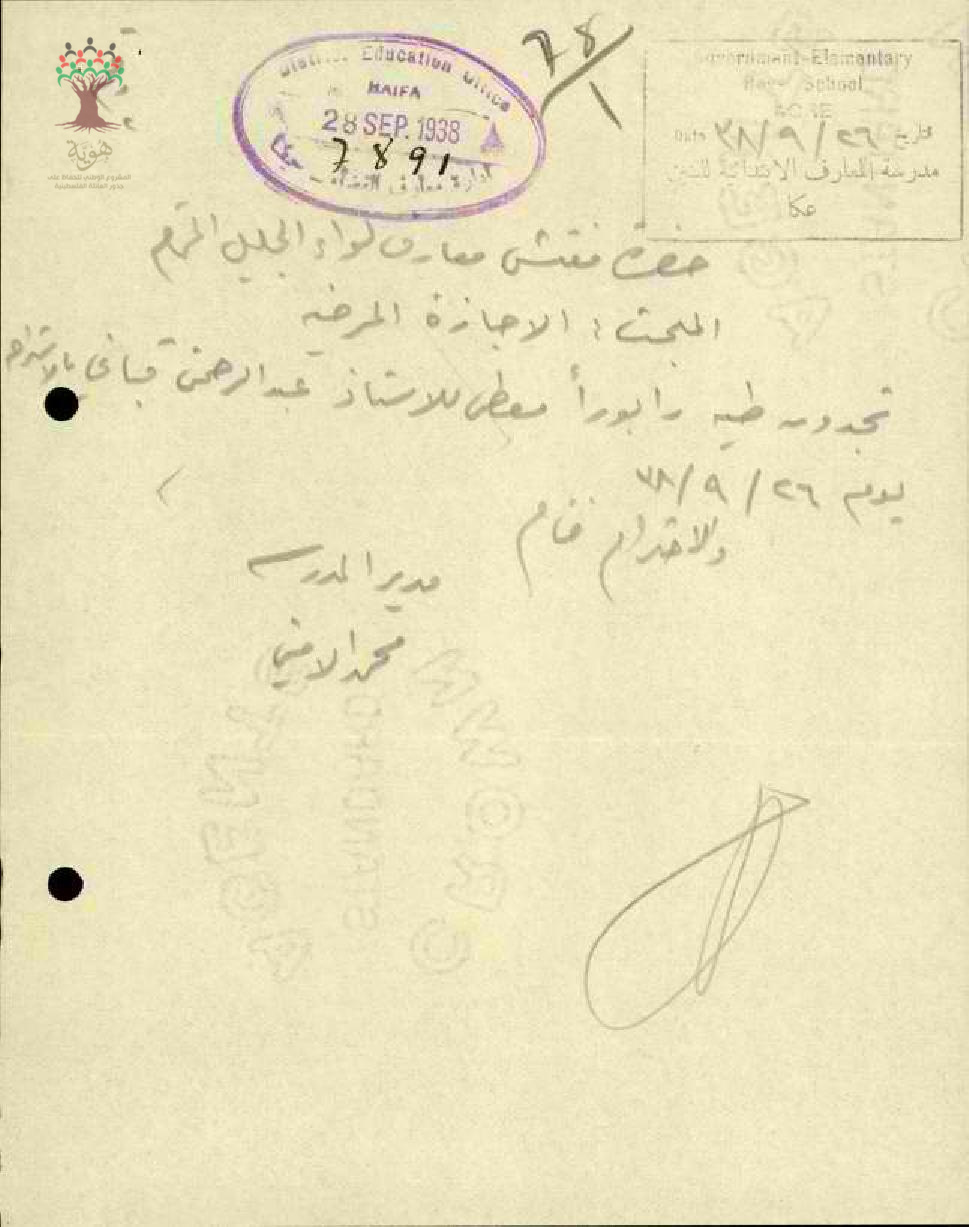 هوية
المشروع الوطني للحفاظ على
جذور العائلة الفلسطينية
District Education Office
HAIFA
28 SEP. 1938
7891
ادارة معارف
حيفا
78/1
Government Elementary
Boys School
ACRE
Date ٢٦/٩/٣٨ تاريخ
مدرسة المعارف الابتدائية للبنين
عكا
حضرة مفتش معارف لواء الجليل المحترم
المبحث: الاجازة المرضيه
تجدون طيه رابوراً معطى للاستاذ عبد الرحمن
يوم ٢٦/٩/٣٨
والاحترام ختام
مدير المدرسه
محمد الامين